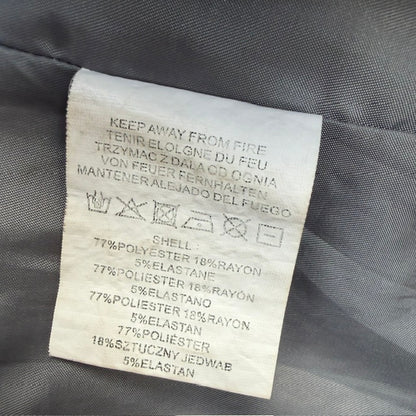 KEEP AWAY FROM FIRE
TENIR ELOLGNE DU FEU
TRZYMAC Z DALA OD OGNIA
VON FEUER FERNHALTEN
MANTENER ALEJADO DEL FUEGO
SHELL :
77%POLYESTER 18%RAYON
5%ELASTANE
77%POLIESTER 18%RAYÓN
5%ELASTANO
77%POLIESTER 18%RAYON
5%ELASTAN
77%POLIESTER
18%SZTUCZNY JEDWAB
5%ELASTAN